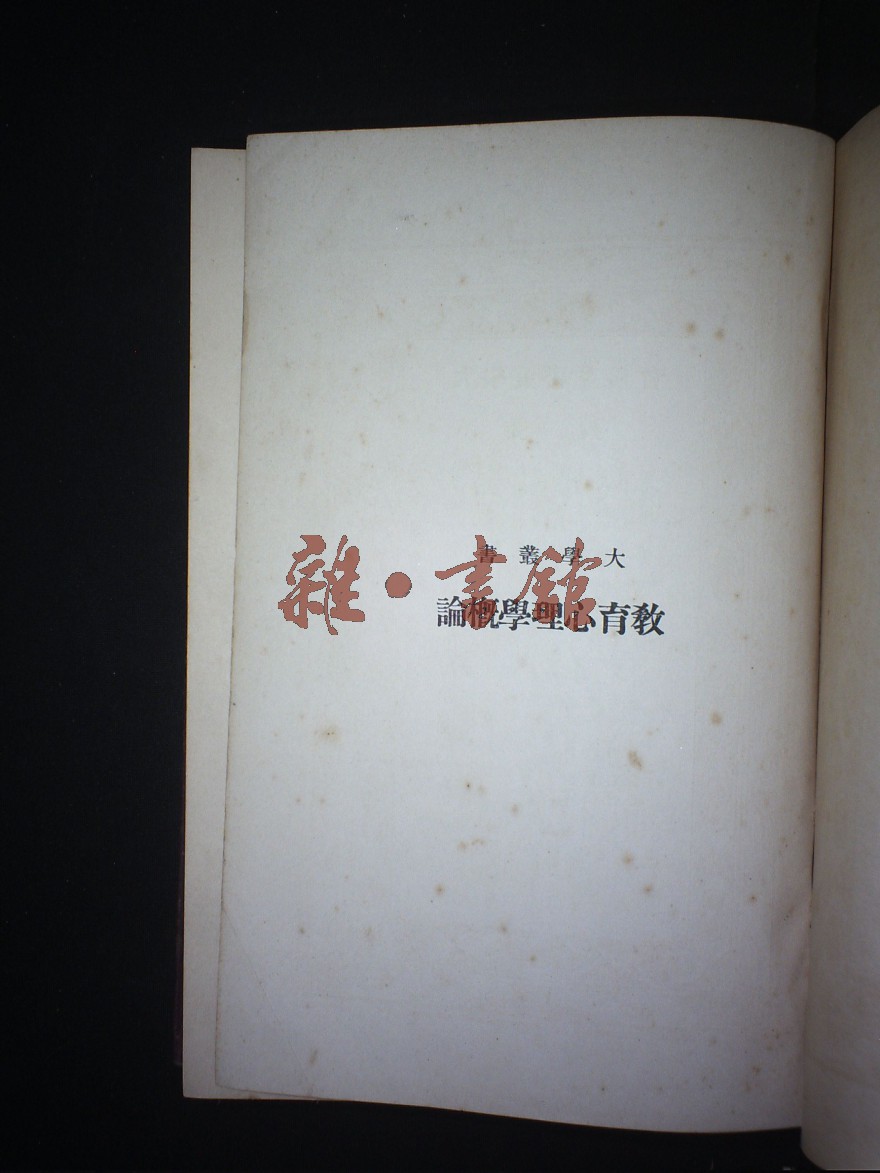 大學叢書
教育心理學概論
雜·書館